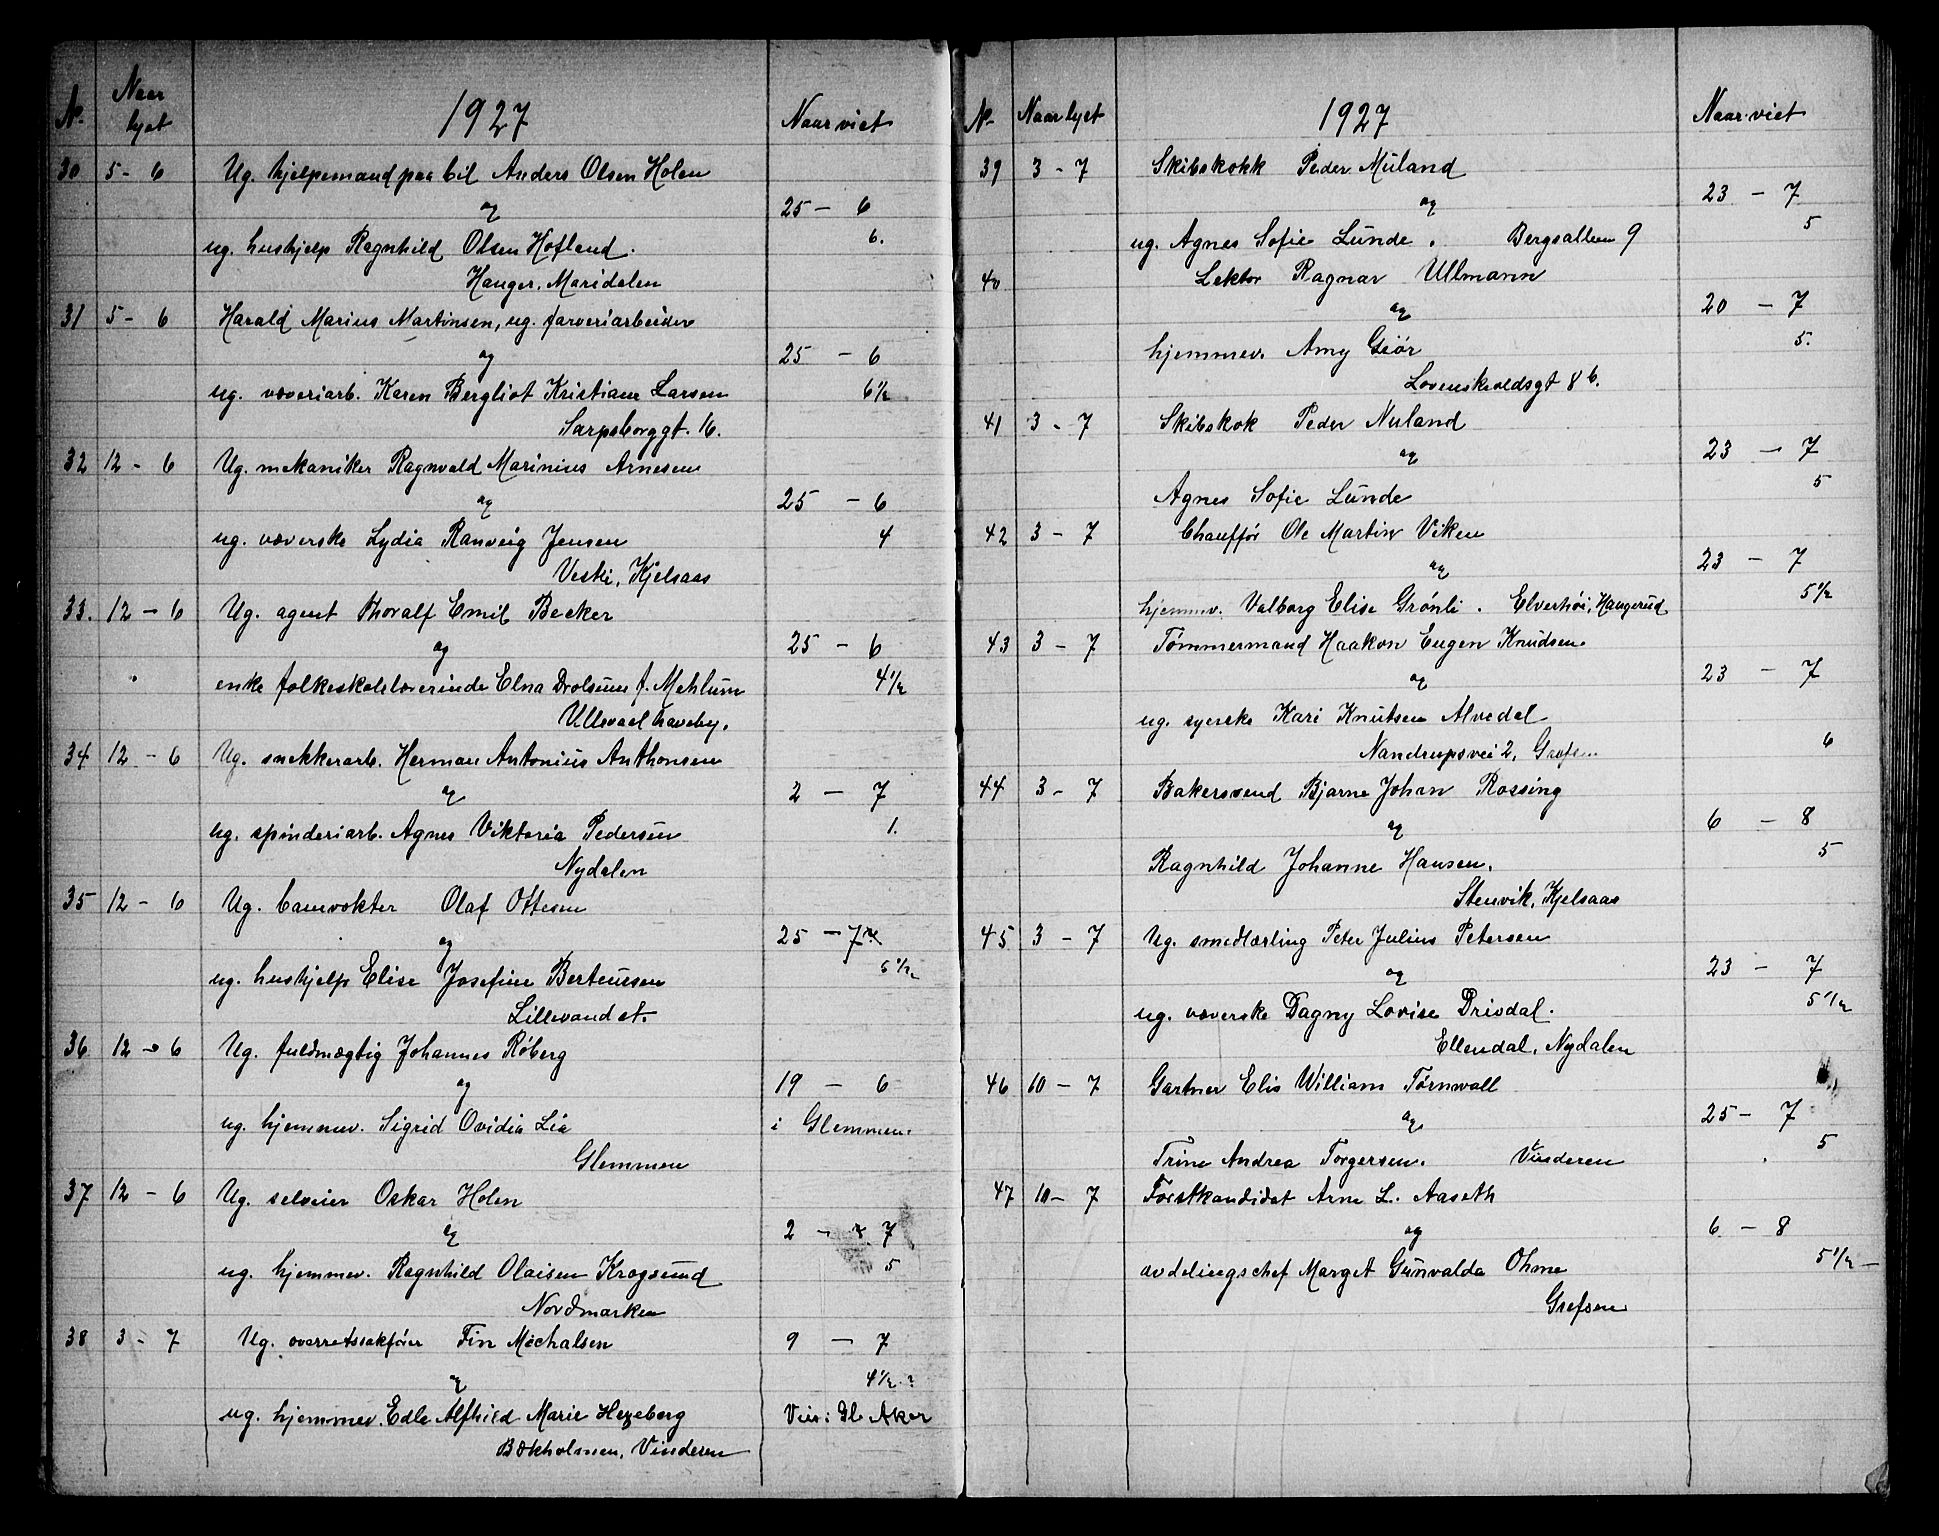 No.
Naar lyst
1927
Naar viet
30 5-6 Ug. hjelpemand paa bil Anders Olsen Holen
og
25 - 6
ug. hushjelp Ragnhild Olsen Hofland.
6.
Hauger, Maridalen
31 5-6 Harald Marius Martinsen, ug. farveriarbeider
og
25 - 6
ug. væveriarb. Karen Bergliot Kristiane Larsen
6 1/2
Sarpsborggt. 16.
32 12-6 Ug. mekaniker Ragnvald Marinius Arnesen
og
25 - 6
ug. væverske Lydia Ranveig Jensen
4
Vestli, Kjelsaas
33. 12-6 Ug. agent Thoralf Emil Becker
og
25 - 6
enke folkeskolelærerinde Elna Drolsum f. Mehlum
4 1/2
Ullevaal haveby.
34 12-6 Ug. snekkerarb. Herman Antonius Anthonsen
og
2 - 7
ug. spinderiarb. Agnes Viktoria Pedersen
1.
Nydalen
35 12-6 Ug. banevokter Olaf Ottesen
og
25 - 7
ug. hushjelp Elise Josefine Berteussen
5 1/2
Lillevand st.
36 12-6 Ug. fuldmægtig Johannes Röberg
og
19 - 6
ug. hjemmev. Sigrid Ovidia Lia
i Glemmen.
Glemmen
37 12-6 Ug. selveier Oskar Holen
og
2 - 7
ug. hjemmev. Ragnhild Olaisen Krogsund
5
Nordmarken
38 3-7 Ug. overretssakfører Fin Michalsen
9 - 7
og
4 1/2 ?
ug. hjemmev. Edle Alfhild Marie Hezeberg
Vies i Gl. Aker
Bækholmen, Vinderen
No.
Naar lyst
1927
Naar viet
39 3-7 Skibskokk Peder Muland
og
23 - 7
ug. Agnes Sofie Lunde. Bergsalleen 9
5
40 Lektor Ragnar Ullmann
og
20 - 7
hjemmev. Amy Giör
5.
Lovenskioldsgt 8 b.
41 3-7 Skibskok Peder Nuland
og
23 - 7
Agnes Sofie Lunde
5
42 3-7 Chauffør Ole Martin Viken
og
23 - 7
hjemmev. Valborg Elise Grönli. Elverhöi, Haugerud
5 1/2
43 3-7 Tømmermand Haakon Eugen Knudsen
og
23 - 7
ug. syerske Kari Knutsen Alvedal
Nandrupsvei 2, Grefsen
6
44 3-7 Bakersvend Bjarne Johan Rossing
og
6 - 8
Ragnhild Johanne Hansen.
5
Stenvik, Kjelsaas
45 3-7 Ug. smedlærling Peter Julius Petersen
og
23 - 7
ug. væverske Dagny Lovise Drivdal.
5 1/2
Ellendal, Nydalen
46 10-7 Gartner Elis William Törnwall
og
25 - 7
Trine Andrea Torgersen. Vinderen
5
47 10-7 Forstkandidat Arne L. Aaseth
og
6 - 8
avdelingschef Margit Gunvalda Ohme
5 1/2
Grefsen